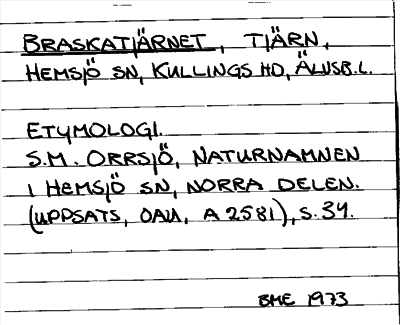 BRASKATJÄRNET, TJÄRN,
HEMSJÖ SN, KULLINGS HD, ÄLVSB.L.
ETYMOLOGI.
S.M. ORRSJÖ, NATURNAMNEN
I HEMSJÖ SN, NORRA DELEN.
(UPPSATS, OAU, A 2581), S. 34.
BME 1973